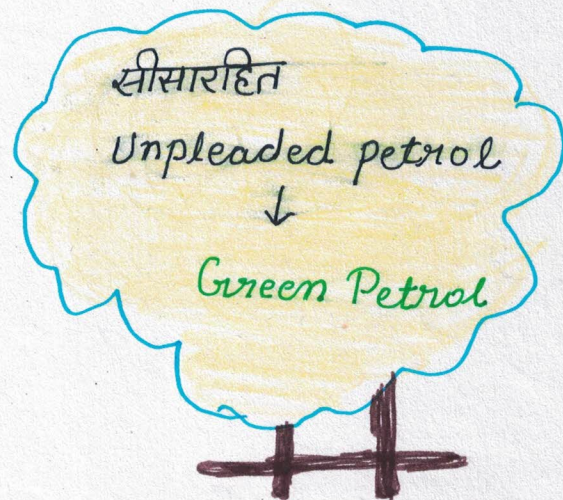 सीसारहित
Unpleaded petrol
↓
Green Petrol